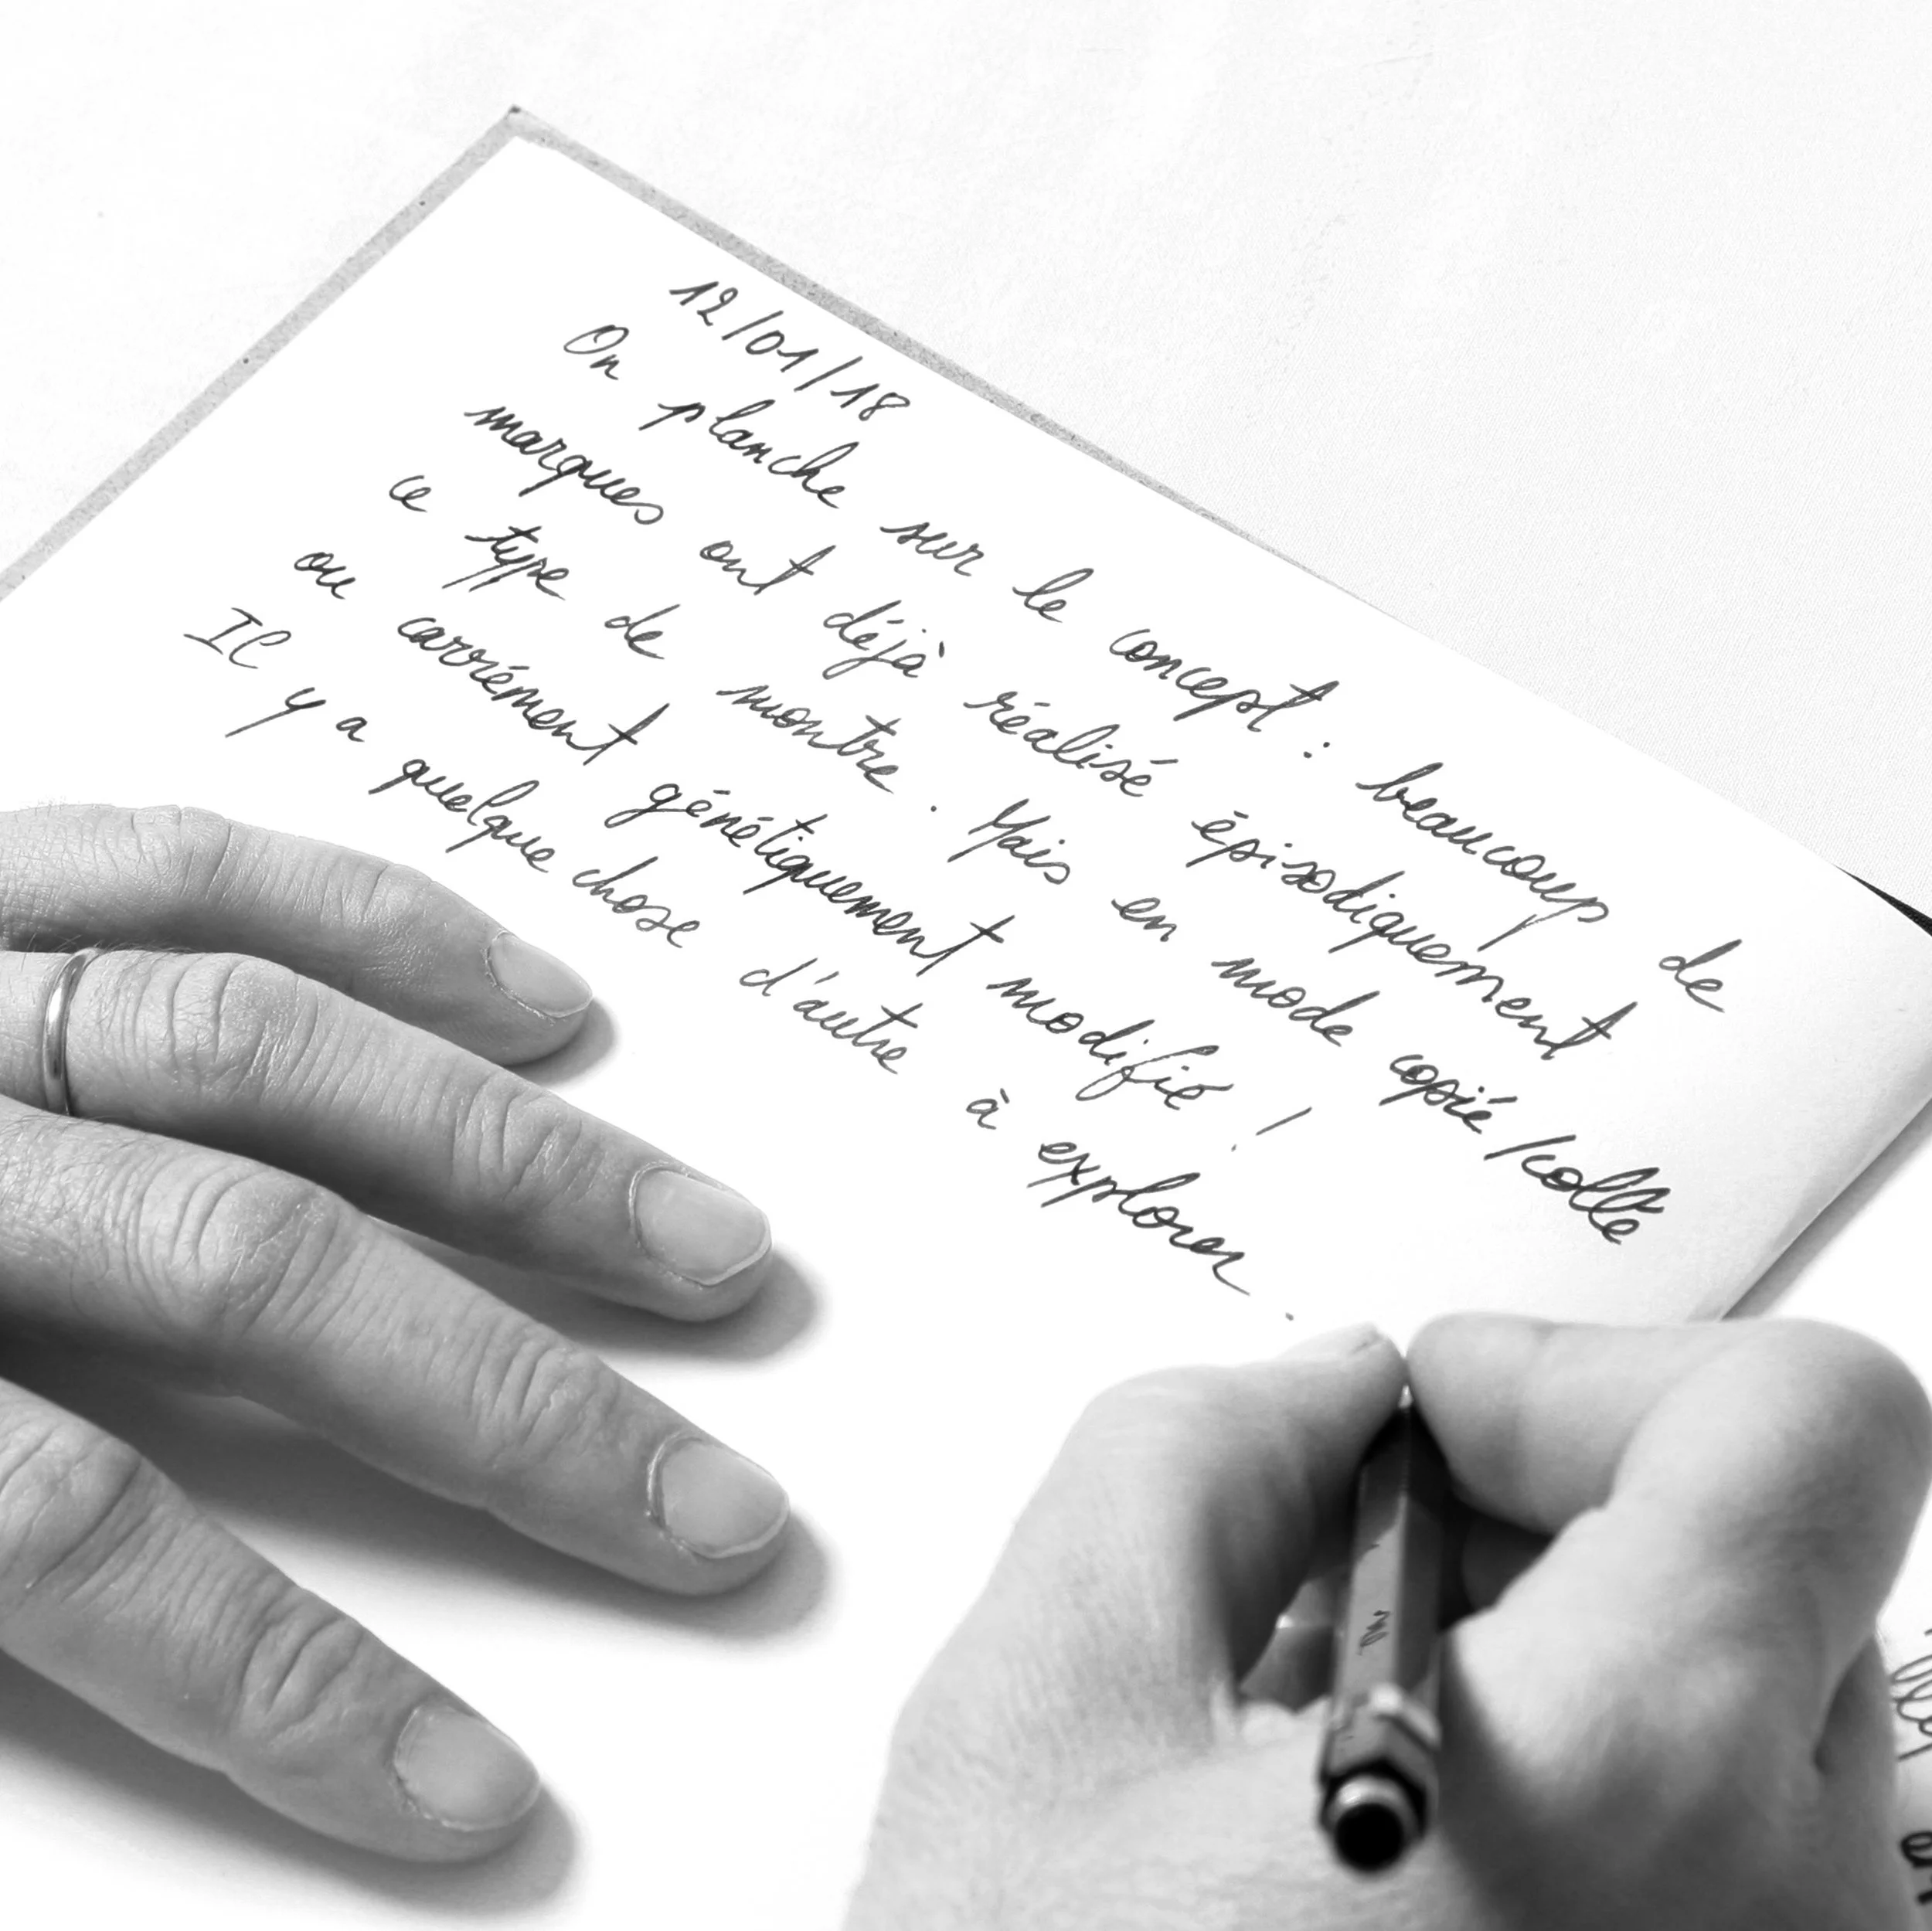 12/01/18
On planche sur le concept : beaucoup de
marques ont déjà réalisé épisodiquement
ce type de montre. Mais en mode copié/collé
ou carrément génétiquement modifié !
Il y a quelque chose d'autre à explorer.